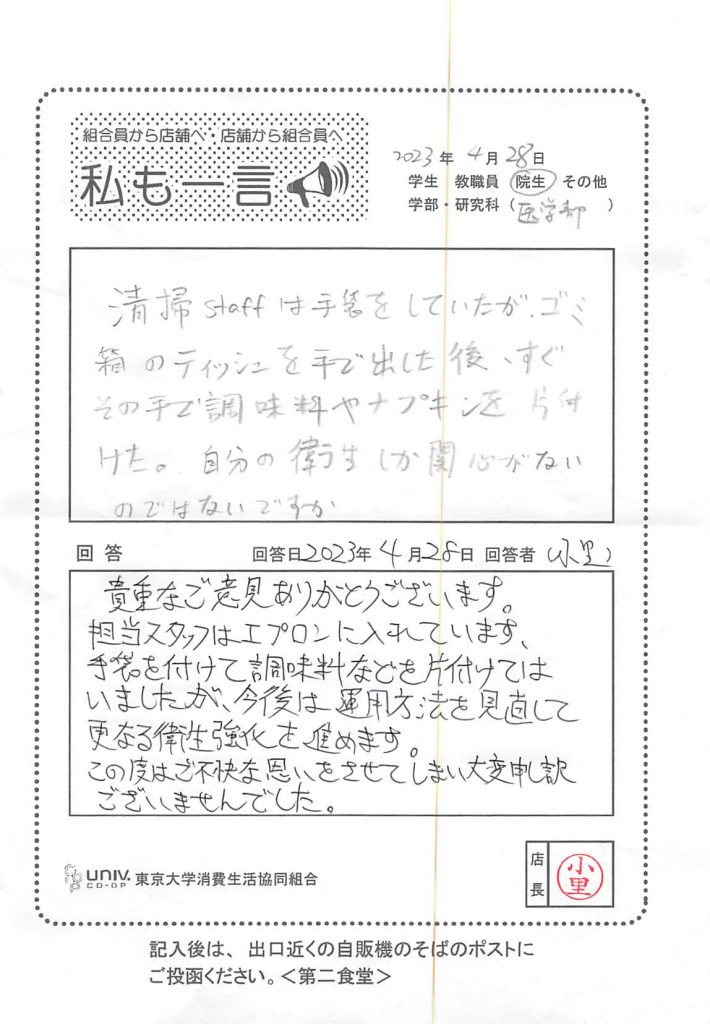 組合員から店舗へ・店舗から組合員へ
私も一言
2023年 4月28日
学生 教職員 院生 その他
学部・研究科（医学部）
清掃staffは手袋をしていたが、ゴミ
箱のティッシュを手で出した後、すぐ
その手で調味料やナプキンを片付
けた。自分の衛生しか関心がない
のではないですか
回答 回答日2023年4月28日 回答者（小里）
貴重なご意見ありがとうございます。
担当スタッフはエプロンに入れています、
手袋を付けて調味料などを片付けては
いましたが、今後は運用方法を見直して
更なる衛生強化を進めます。
この度はご不快な思いをさせてしまい大変申し訳
ございませんでした。
UNIV. CO-OP 東京大学消費生活協同組合
店長 小里
記入後は、出口近くの自販機のそばのポストに
ご投函ください。＜第二食堂＞